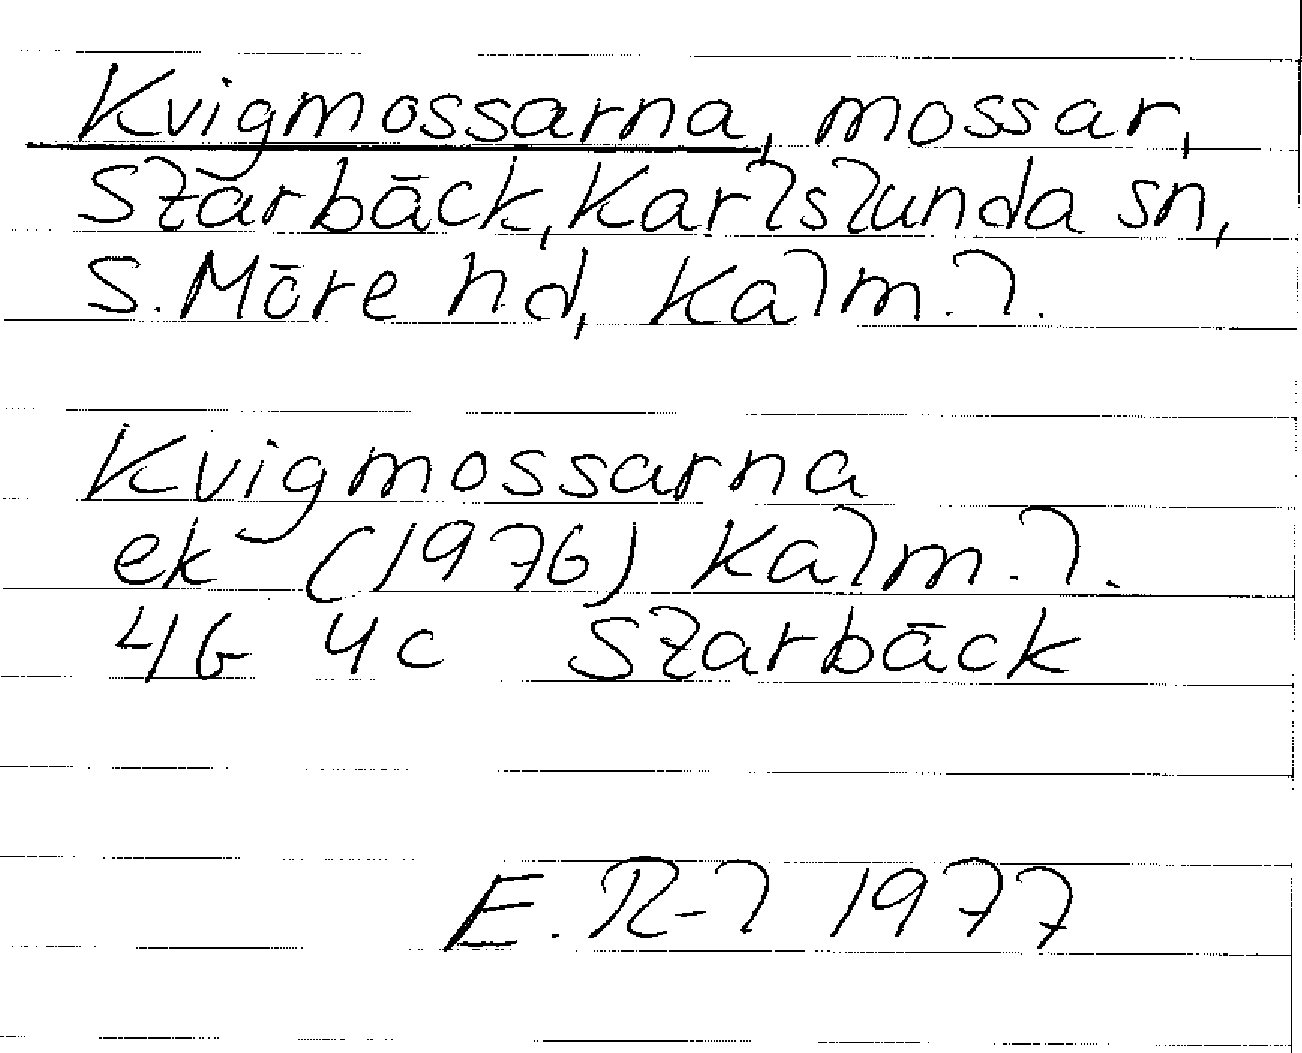 Kvigmossarna, mossar,
Starbäck, Karlslunda sn,
S. Möre hd, Kalm. l.
Kvigmossarna
ek (1976) Kalm. l.
4G 4c Starbäck
E. R-l 1977